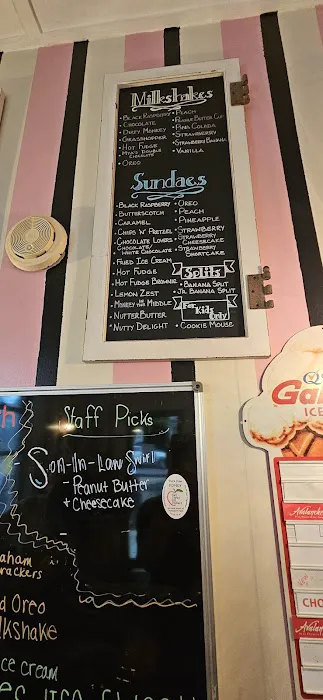 Milkshakes
• Black Raspberry
• Chocolate
• Dirty Monkey
• Grasshopper
• Hot Fudge
Chocolate
• Oreo
• Peach
• Peanut Butter Cup
• Pina Colada
• Strawberry
• Strawberry Banana
• Vanilla
Sundaes
• Black Raspberry
• Butterscotch
• Caramel
• Chips 'N' Pretzel
• Chocolate Lovers
Chocolate/
White Chocolate
• Fried Ice Cream
• Hot Fudge
• Hot Fudge Brownie
• Lemon Zest
• Monkey in the Middle
• Nutter Butter
• Nutty Delight
• Oreo
• Peach
• Pineapple
• Strawberry
• Strawberry
Cheesecake
• Strawberry
Shortcake
Splits
• Banana Split
• Jr. Banana Split
For Kids
Only
• Cookie Mouse
Staff Picks
Son-In-Law Swirl
- Peanut Butter
+ Cheesecake
aham
rackers
d Oreo
lkshake
ce cream
Ga
ICE
CHO